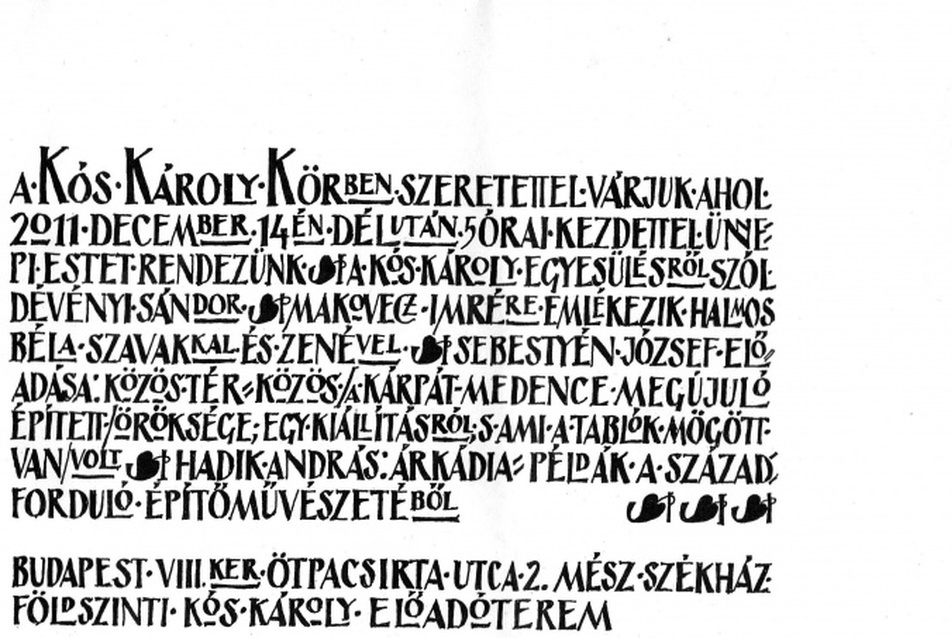 A·KÓS·KÁROLY·KÖRBEN·SZERETETTEL·VÁRJUK·AHOL·
2011·DECEMBER·14ÉN·DÉLUTÁN·5ÓRAI·KEZDETTEL·ÜNNE-
PI·ESTET·RENDEZÜNK· A·KÓS·KÁROLY·EGYESÜLÉSRŐL·SZÓL·
DÉVÉNYI·SÁNDOR· MAKOVECZ·IMRÉRE·EMLÉKEZIK·HALMOS
BÉLA·SZAVAKKAL·ÉS·ZENÉVEL· SEBESTYÉN·JÓZSEF·ELŐ=
ADÁSA: KÖZÖS·TÉR=KÖZÖS/A·KÁRPÁT-MEDENCE·MEGÚJULÓ
ÉPÍTETT/ÖRÖKSÉGE; EGY·KIÁLLÍTÁSRÓL;S·AMI·A·TABLÓK·MÖGÖTT·
VAN/VOLT HADIK·ANDRÁS: ÁRKÁDIA=PÉLDÁK·A·SZÁZAD-
FORDULÓ·ÉPÍTŐMŰVÉSZETÉBŐL
BUDAPEST·VIII.KER·ÖTPACSIRTA·UTCA·2. MÉSZ·SZÉKHÁZ·
FÖLDSZINTI·KÓS·KÁROLY·ELŐADÓTEREM